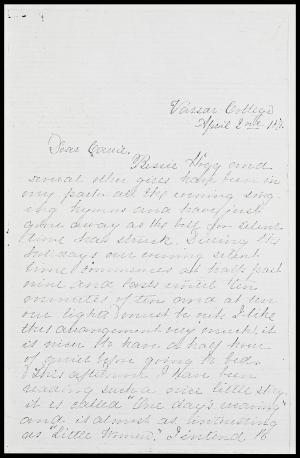 Vassar College
April 2nd
Dear Carrie.
Bessie Hogg and
several other girls have been in
my parlor all the evening sing-
ing hymns and have just
gone away as the bell for silent
time has struck. During the
holidays our evening silent
time commences at half past
nine and lasts until ten
minutes of ten and at ten
our lights must be out. I like
this arrangement very much; it
is nice to have a half hour
of quiet before going to bed.
This afternoon I have been
reading such a nice little story
it is called "One day's weaving"
and is almost as interesting
as "Little Women". I intend to